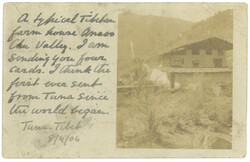 A typical Tibetan
farm house
Chu Valley. I am
sending you four
cards. I think the
first ever sent
from Tuna since
the world began.
Tuna Tibet
8/4/04